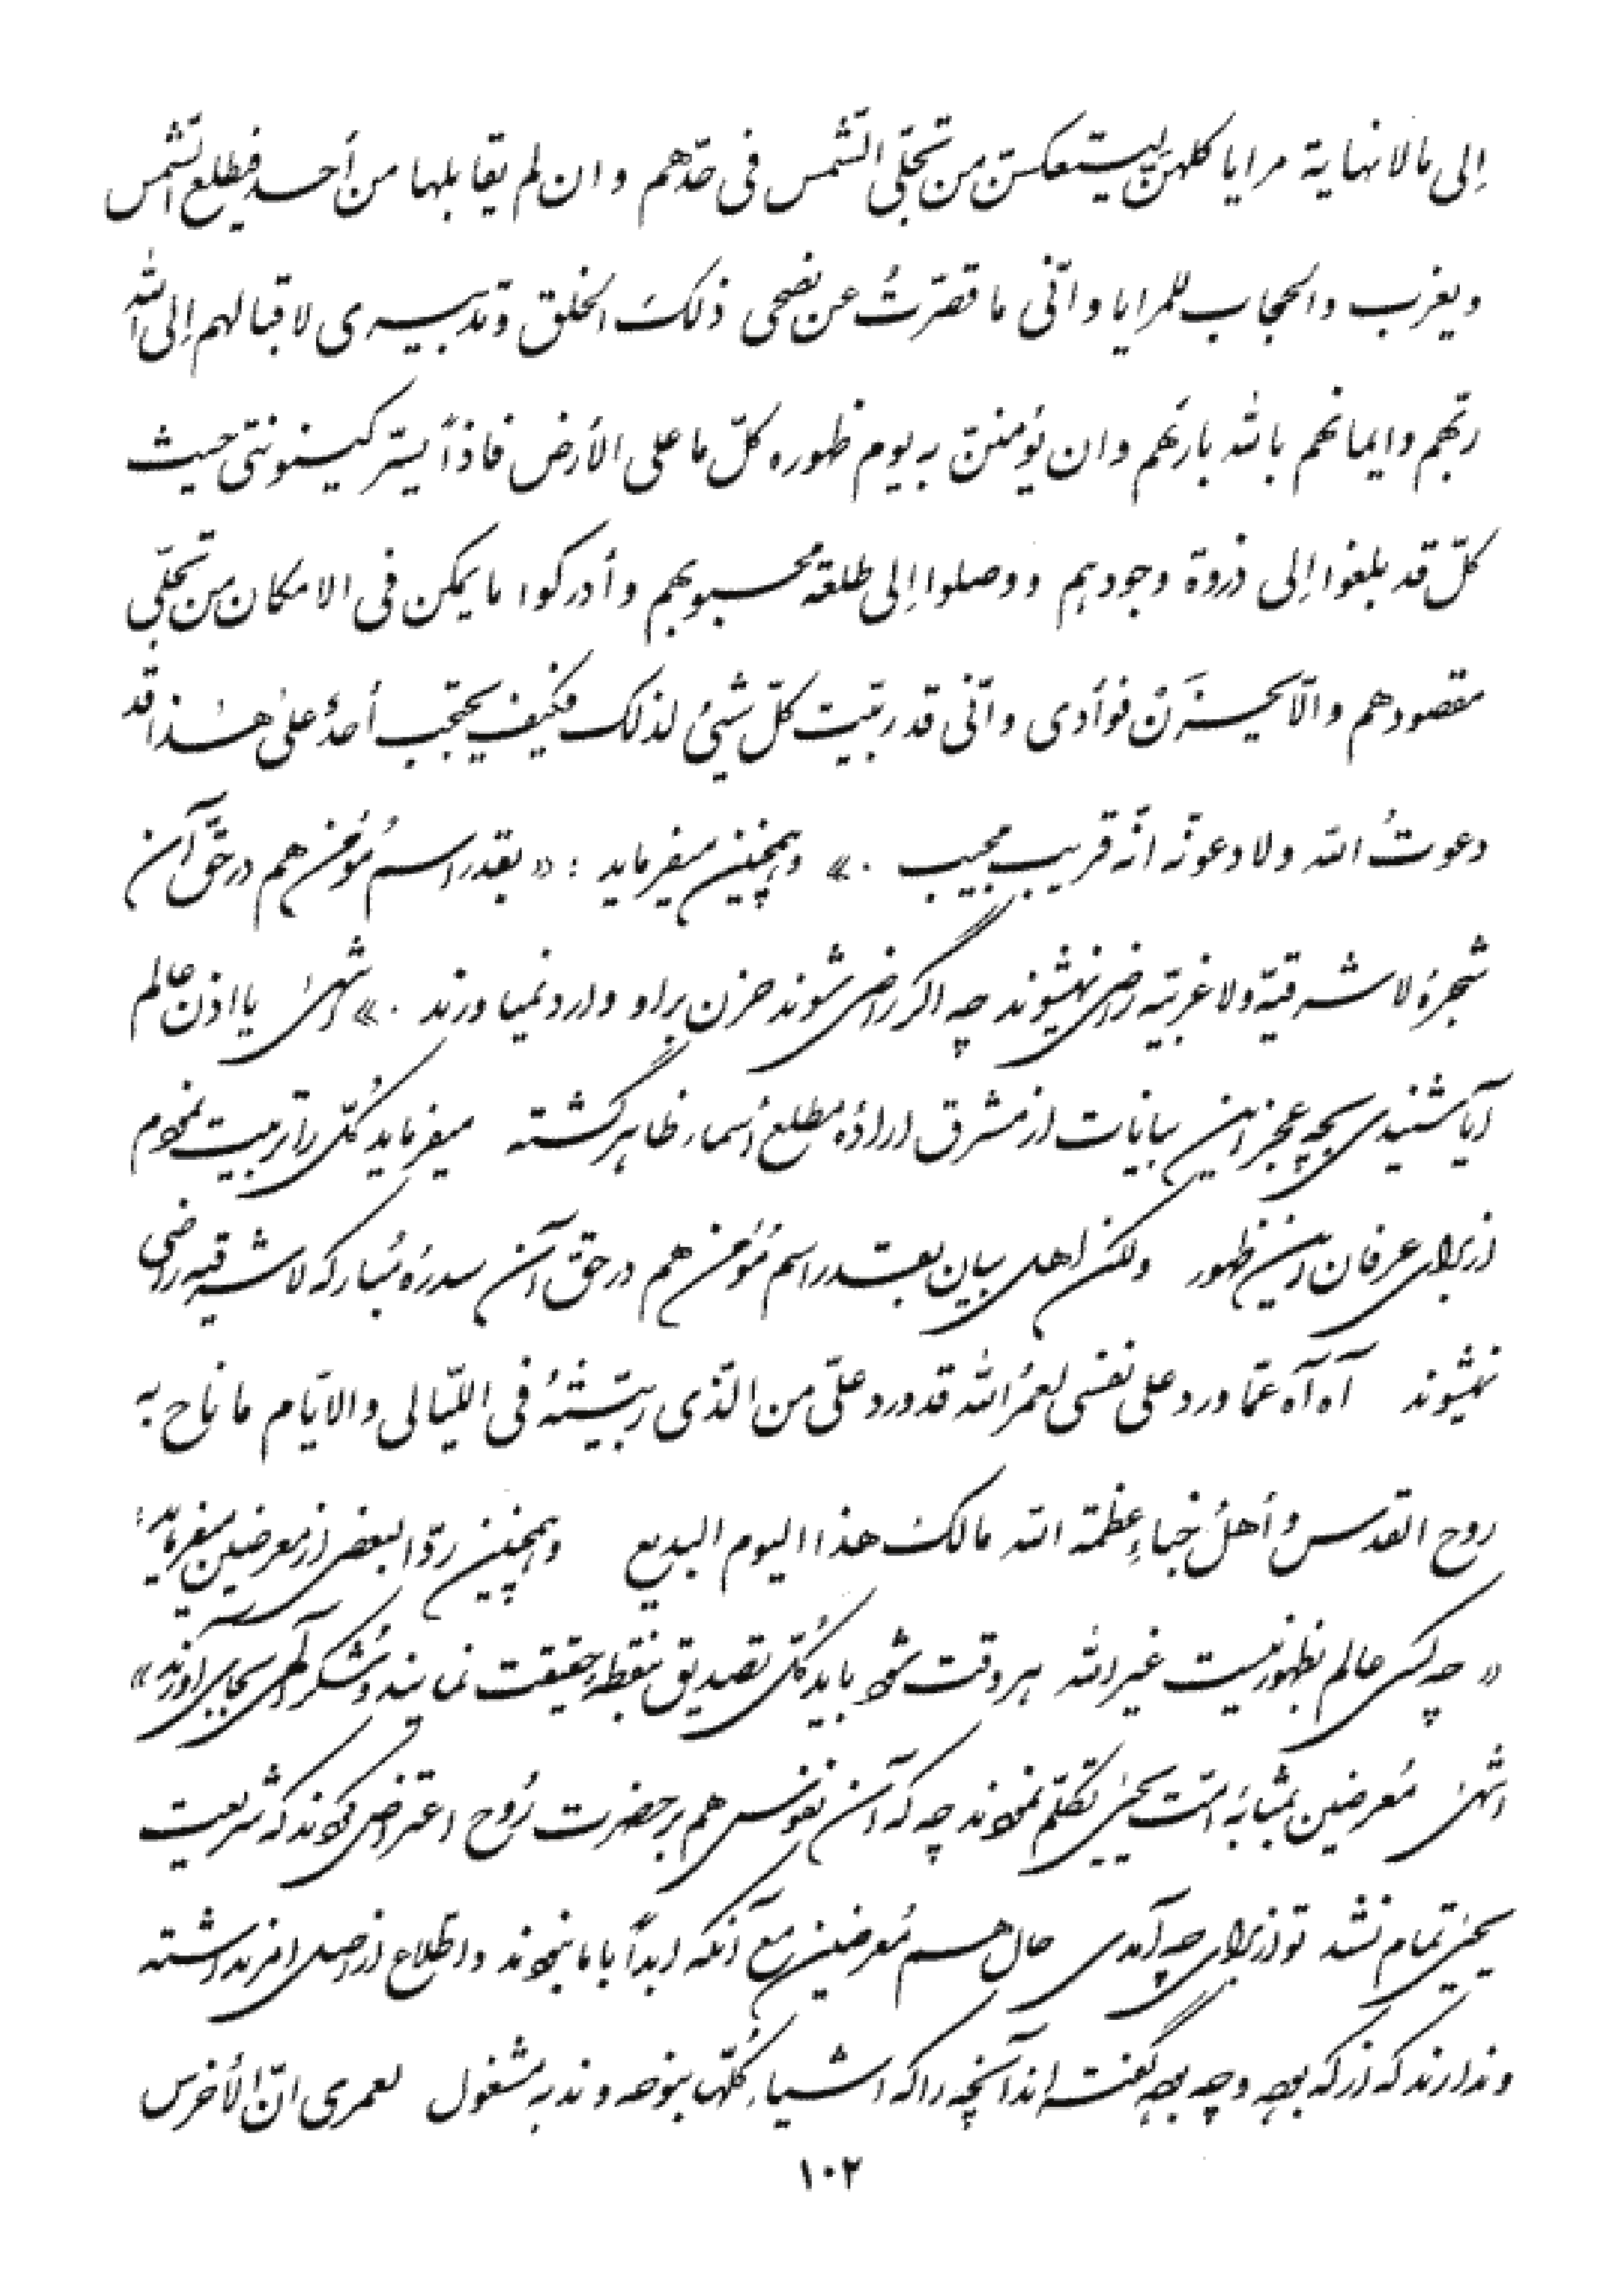 إلى مالانهاية مرايا كلهنّ ليستعكسنّ من تجلّي الشّمس فى حدّهم و ان لم يقابلها من أحد فيطلع الشّمس
و يغرب والحجاب للمرايا و انّى ما قصّرتُ عن نصحى ذلك الخلق و تدبيرى لاقبالهم إلى الله
ربّهم و ايمانهم بالله بارئهم و ان يؤمننّ به يوم ظهوره كلّ ما على الأرض فاذاً يسرّ كينونتى حيث
كلّ قد بلغوا إلى ذروة وجودهم و وصلوا إلى طلعة محبوبهم و أدركوا ما يمكن فى الامكان من تجلّى
مقصودهم و الّا يحزَنْ فؤادى و انّى قد ربّيت كلّ شيئ لذلك فكيف يحتجب أحدٌ على هذا قد
دعوتُ الله و لا دعونّه انّه قريب مجيب .» و همچنين ميفرمايد : « بقدر اسمُ مؤمن هم در حقّ آن
شجرهٔ لا شرقيّه و لا غربيّه راضى نميشوند چه اگر راضى شوند حزن بر او وارد نمياورند .» انتهىٰ يا اذن عالم
آيا شنيدى بچه عجز اين بيانات از مشرق ارادهٔ مطلع أسماء ظاهر گشته ميفرمايد كُلّ را تربيت نمودم
از براى عرفان اين ظهور ولكن اهل بيان بقدر اسم مُؤمن هم در حقّ آن سدرهٔ مُباركه لا شرقيه راضى
نميشوند آه آه عمّا ورد على نفسى لعمرُ الله قد ورد علىّ من الّذى ربّيتهُ فى اللّيالى و الايّام ما ناح به
روح القدس و أهلُ خباءِ عظمة الله مالك هذا اليوم البديع و همچنين ردّاً لبعض از معرضين ميفرمايد :
« چه كسى عالم بظهور نيست غير الله هر وقت شود بايد كُلّ تصديق بنقطهٔ حقيقت نمايند و شكر الهى بجاى آورند »
انتهىٰ مُعرضين بمثابهٔ امّت يحيىٰ تكلّم نمودند چه كه آن نفوس هم بر حضرت رُوح اعتراض نمودند كه شريعت
يحيىٰ تمام نشد تو از براى چه آمدى حال هم مُعرضين مع آنكه ابداً با ما نبودند و اطّلاع از اصل امر نداشته
و ندارند كه از كه بوده و چه بوده گفته‌اند آنچه را كه اشياء كُلّها بنوحه و ندبه مشغول لعمرى انّ الأخرس
١٠٢